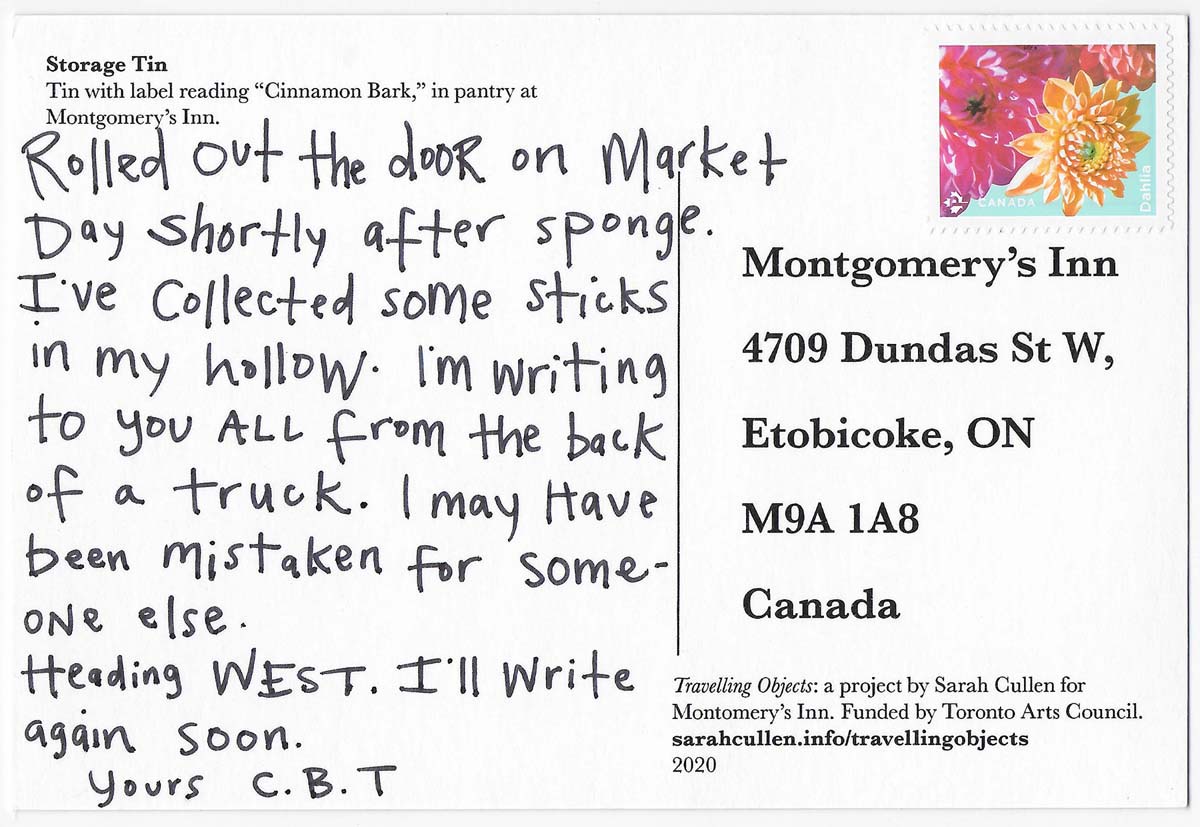 Storage Tin
Tin with label reading “Cinnamon Bark,” in pantry at
Montgomery’s Inn.
Rolled out the dooR on Market
Day shortly after sponge.
I've Collected some sticks
in my hollow. I'm writing
to you ALL from the back
of a truck. I may Have
been mistaken for some-
one else.
Heading WEST. I'll Write
again soon.
Yours C.B.T
CANADA
Dahlia
P
Montgomery’s Inn
4709 Dundas St W,
Etobicoke, ON
M9A 1A8
Canada
Travelling Objects: a project by Sarah Cullen for
Montomery’s Inn. Funded by Toronto Arts Council.
sarahcullen.info/travellingobjects
2020